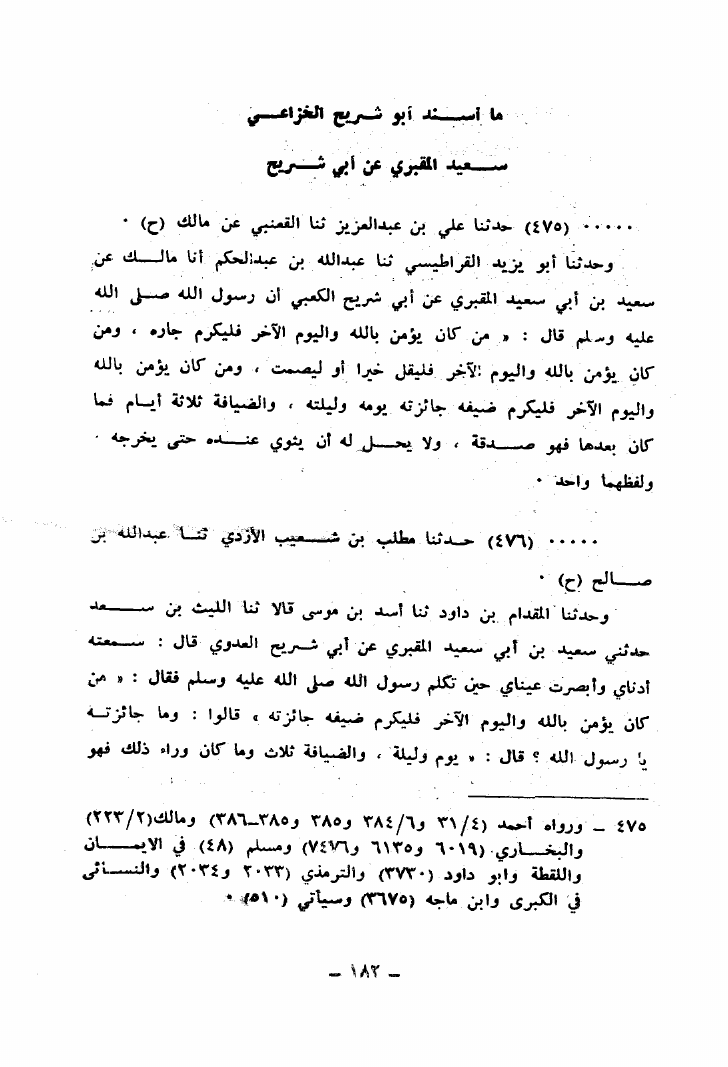 ما أسند أبو شريح الخزاعي
سعيد المقبري عن أبي شريح
٠٠٠٠٠ (٤٧٥) حدثنا علي بن عبدالعزيز ثنا القعنبي عن مالك (ح) ٠
وحدثنا أبو يزيد القراطيسي ثنا عبدالله بن عبدالحكم أنا مالك عن
سعيد بن أبي سعيد المقبري عن أبي شريح الكعبي ان رسول الله صلى الله
عليه وسلم قال : « من كان يؤمن بالله واليوم الآخر فليكرم جاره ، ومن
كان يؤمن بالله واليوم الآخر فليقل خيرا أو ليصمت ، ومن كان يؤمن بالله
واليوم الآخر فليكرم ضيفه جائزته يومه وليلته ، والضيافة ثلاثة أيام فما
كان بعدها فهو صدقة ، ولا يحل له أن يثوي عنده حتى يخرجه ٠
ولفظهما واحد ٠
٠٠٠٠٠ (٤٧٦) حدثنا مطلب بن شعيب الأزدي ثنا عبدالله بن
صالح (ح) ٠
وحدثنا المقدام بن داود ثنا أسد بن موسى قالا ثنا الليث بن سعد
حدثني سعيد بن أبي سعيد المقبري عن أبي شريح العدوي قال : سمعته
أدناي وأبصرت عيناي حين تكلم رسول الله صلى الله عليه وسلم فقال : « من
كان يؤمن بالله واليوم الآخر فليكرم ضيفه جائزته » قالوا : وما جائزته
يا رسول الله ؟ قال : « يوم وليلة ، والضيافة ثلاث وما كان وراء ذلك فهو
٤٧٥ – ورواه أحمد (٣١/٤ و٣٨٤/٦ و٣٨٥ و٣٨٥–٣٨٦) ومالك(٢٢٣/٢)
والبخاري (٦٠١٩ و٦١٣٥ و٧٤٧٦) ومسلم (٤٨) في الايمان
واللقطة وابو داود (٣٧٣٠) والترمذي (٢٠٣٣ و٢٠٣٤) والنسائى
في الكبرى وابن ماجه (٣٦٧٥) وسيأتي (٥١٠) ٠
– ١٨٢ –